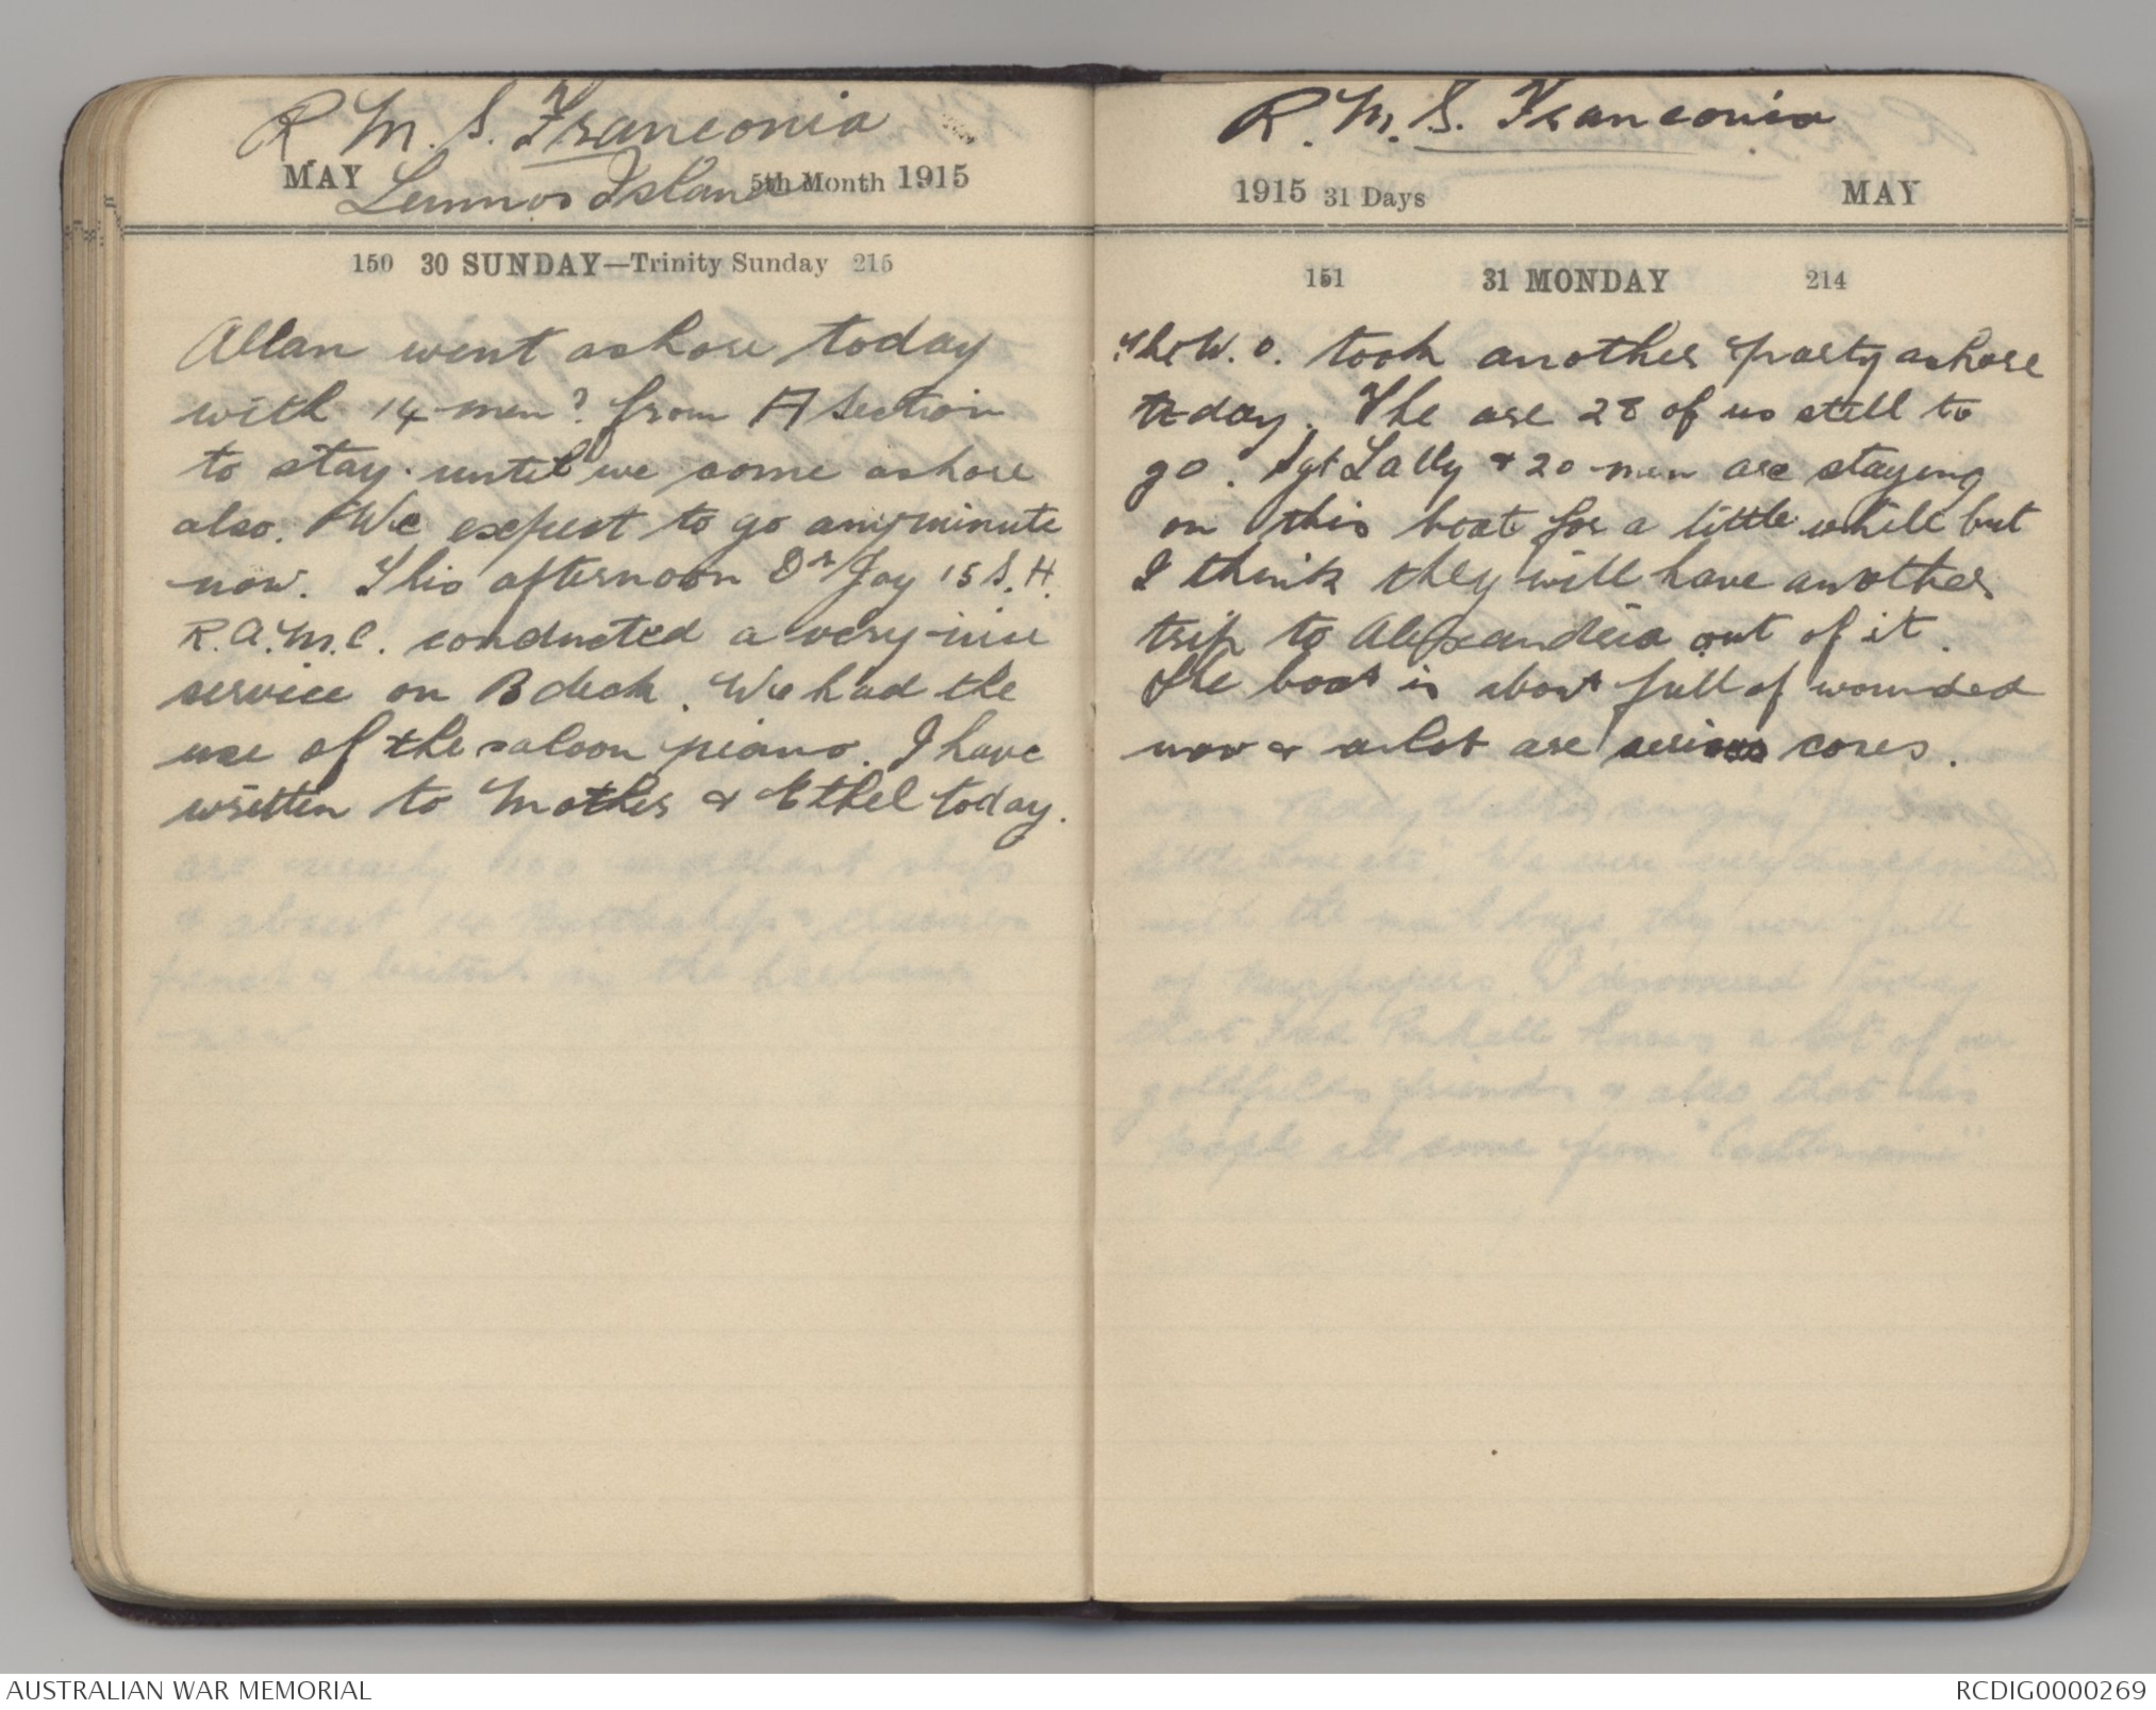 R. M. S. Franconia
MAY Lemnos Island 5th Month 1915
150 30 SUNDAY—Trinity Sunday 215
Allan went ashore today
with 14 men? from A Section
to stay until we come ashore
also. We expect to go any minute
now. This afternoon Dr Jay 15 S. H.
R.A.M.C. conducted a very nice
service on B deck. We had the
use of the saloon piano. I have
written to Mother & Ethel today.
R. M. S. Franconia
1915 31 Days MAY
151 31 MONDAY 214
The W. O. took another party ashore
to day. The are 28 of us still to
go. Sgt Lally & 20 men are staying
on this boat for a little while but
I think they will have another
trip to Alexandria out of it.
The boat is about full of wounded
now & a lot are serious cases.
AUSTRALIAN WAR MEMORIAL
RCDIG0000269